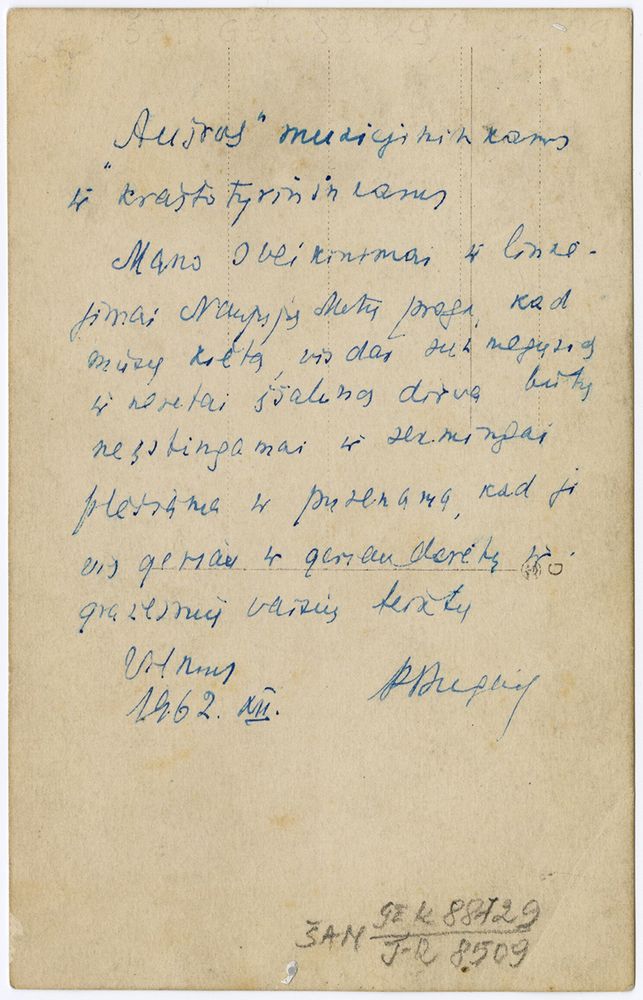 „Aušros" muziejininkams
ir kraštotyrininkams
Mano sveikinimai ir linkė-
jimai Naujųjų Metų proga, kad
mūsų kieta, vis dar
ir neretai įšalusią dirva būtų
nenstingamai ir sėkmingai
plėšiama ir purenama, kad ji
vis geriau ir geriau derėtų ir
gražesnių vaisių teiktų
Vilnius
1962. XII.
ŠAM GEK 88729
I-R 8509